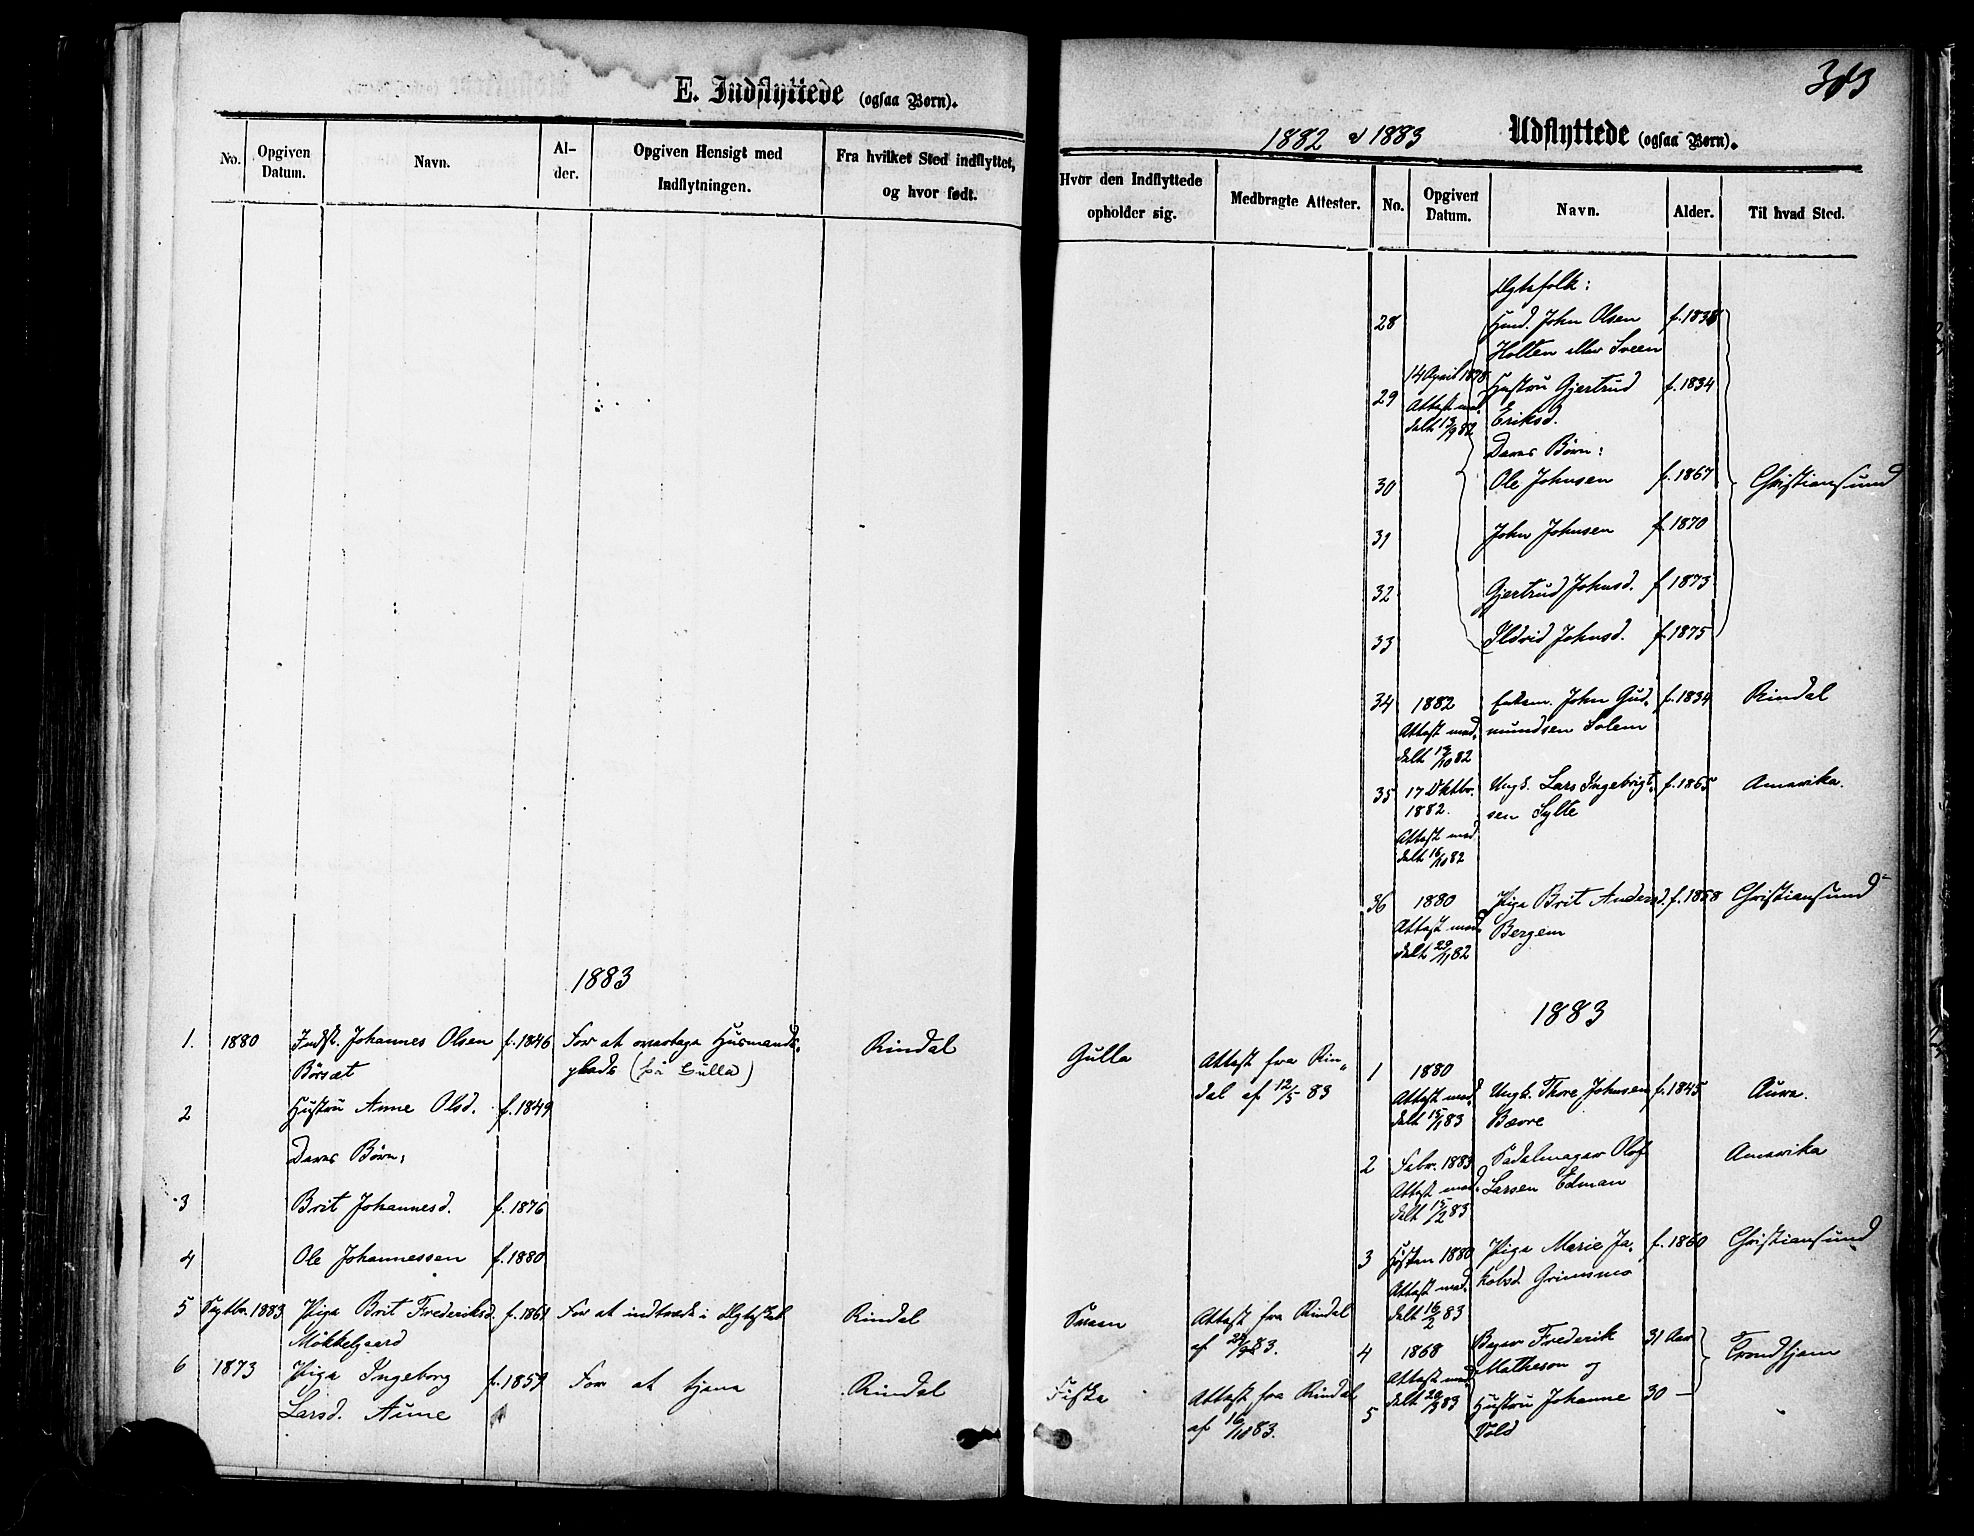 E. Indflyttede (ogsaa Børn).
No.
Opgiven Datum.
Navn.
Alder.
Opgiven Hensigt med Indflytningen.
Fra hvilket Sted indflyttet, og hvor født.
1883
1. 1880 Indst. Johannes Olsen f. 1846 For at overtage Husmands- Rindal
Børsæt plads (på Gulla)
2 Hustru Anne Olsd. f. 1849
Deres Børn:
3 Brit Johannesd. f. 1876
4 Ole Johannessen f. 1880
5 Septbr. 1883 Pige Brit Frederiksd. f. 1861 For at indtræde i Ægteskab Rindal
Møkkelgaard
6 1873 Pige Ingeborg f. 1859 For at tjene Rindal
Larsd. Aune
383
1882 & 1883
Udflyttede (ogsaa Børn).
Hvor den Indflyttede opholder sig.
Medbragte Attester.
No.
Opgiven Datum.
Navn.
Alder.
Til hvad Sted.
Gulla Attest fra Rin-
dal af 12/5 83
Sveen Attest fra Rindal
af 83.
Fiske Attest fra Rindal
af 16/10 83.
Ægtefolk:
28 John Olsen f. 1838
Holten eller Sveen
14 April 1878
29 Hustru Gjertrud f. 1834
Attest med-
delt 13/9 82 Eriksd.
Deres Børn:
30 Ole Johnsen f. 1867 Christiansund
31 John Johnsen f. 1870
32 Gjertrud Johnsd. f. 1873
33 Ildrid Johnsd. f. 1875
34 1882 Enkem. John Gud- f. 1834 Rindal
Attest med- mundsen Solem
delt 13/10 82
35 17 Oktbr. Ungk. Lars Ingebrigt- f. 1865 Amerika.
1882. sen Sylte
Attest med-
delt 16/10 82
36 1880 Pige Brit Andersd. f. 1858 Christiansund
Attest med- Bergem
delt 29/11 82
1883
1 1880
Attest med- Ungk. Thore Johnsen f. 1845 Aure.
delt 15/1 83 Bævre
2 Febr. 1883 Sadelmager Olof Amerika
Attest med- Larsen Edman
delt 15/2 83
3 Høsten 1880 Pige Marie Ja- f. 1860 Christiansund
Attest med- kobsd. Grimsmo
delt 16/2 83
4 1868 Bager Frederik 31 Aar Trondhjem
Attest med- Matheson og
5 delt 20/3 83 Hustru Johanne 30 —
Vold